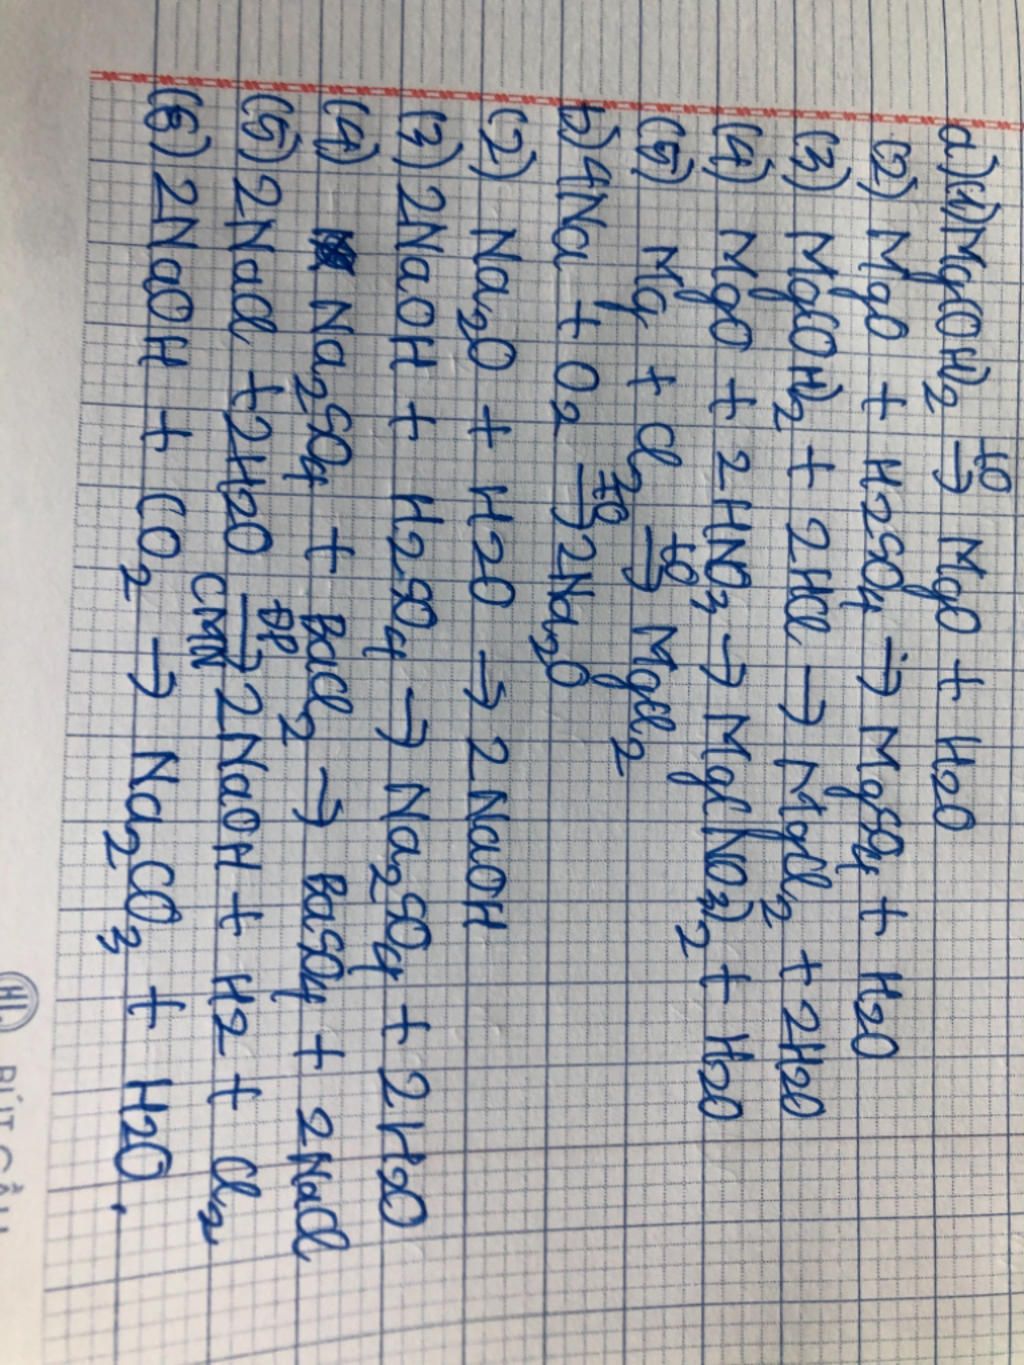 a)(1)Mg(OH)₂ →(t⁰) MgO + H2O
(2) MgO + H2SO₄ → MgSO₄ + H2O
(3) Mg(OH)₂ + 2HCl → MgCl₂ + 2H2O
(4) MgO + 2HNO₃ → Mg(NO₃)₂ + H2O
(5) Mg + Cl₂ →(t⁰) MgCl₂
b) 4Na + O₂ →(t⁰) 2Na₂O
(2) Na₂O + H2O → 2NaOH
(3) 2NaOH + H2SO₄ → Na₂SO₄ + 2H2O
(4) Na₂SO₄ + BaCl₂ → BaSO₄ + 2NaCl
(5) 2NaCl + 2H2O →(đp, CMN) 2NaOH + H2 + Cl₂
(6) 2NaOH + CO₂ → Na₂CO₃ + H2O.